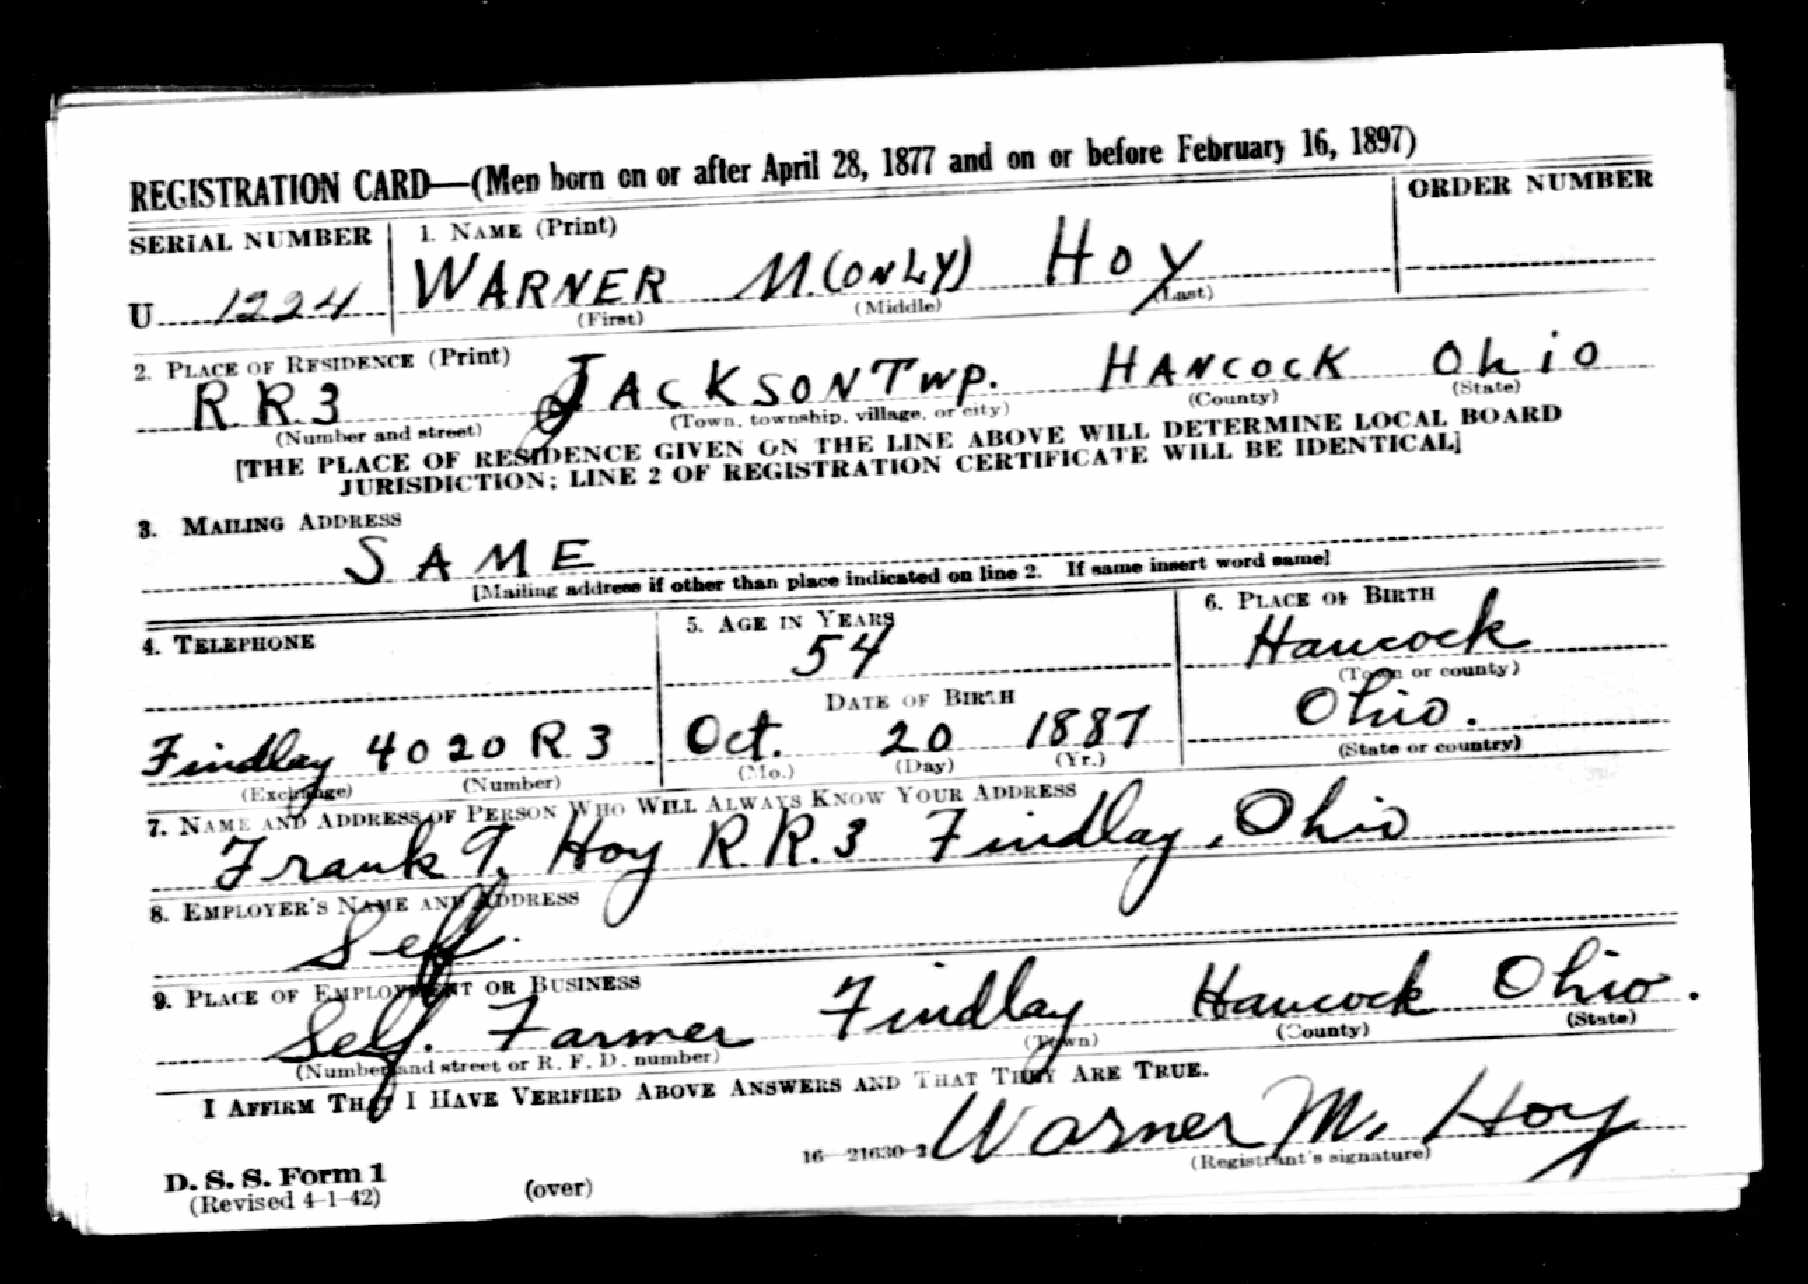 REGISTRATION CARD—(Men born on or after April 28, 1877 and on or before February 16, 1897)
SERIAL NUMBER 1. NAME (Print) ORDER NUMBER
U 1224 WARNER M.(ONLY) HOY
(First) (Middle) (Last)
2. PLACE OF RESIDENCE (Print)
R.R.3 JACKSON TWP. HANCOCK OhiO
(Number and street) (Town, township, village, or city) (County) (State)
[THE PLACE OF RESIDENCE GIVEN ON THE LINE ABOVE WILL DETERMINE LOCAL BOARD
JURISDICTION; LINE 2 OF REGISTRATION CERTIFICATE WILL BE IDENTICAL]
3. MAILING ADDRESS
SAME
[Mailing address if other than place indicated on line 2. If same insert word same]
4. TELEPHONE 5. AGE IN YEARS 6. PLACE OF BIRTH
54 Hancock
(Town or county)
DATE OF BIRTH Ohio.
Findlay 4020 R 3 Oct. 20 1887
(Exchange) (Number) (Mo.) (Day) (Yr.) (State or country)
7. NAME AND ADDRESS OF PERSON WHO WILL ALWAYS KNOW YOUR ADDRESS
Frank T. Hoy R.R.3 Findlay, Ohio
8. EMPLOYER'S NAME AND ADDRESS
Self.
9. PLACE OF EMPLOYMENT OR BUSINESS
Self. Farmer Findlay Hancock Ohio.
(Number and street or R. F. D. number) (Town) (County) (State)
I AFFIRM THAT I HAVE VERIFIED ABOVE ANSWERS AND THAT THEY ARE TRUE.
Warner M. Hoy
D. S. S. Form 1 16—21630-2 (Registrant's signature)
(Revised 4-1-42) (over)